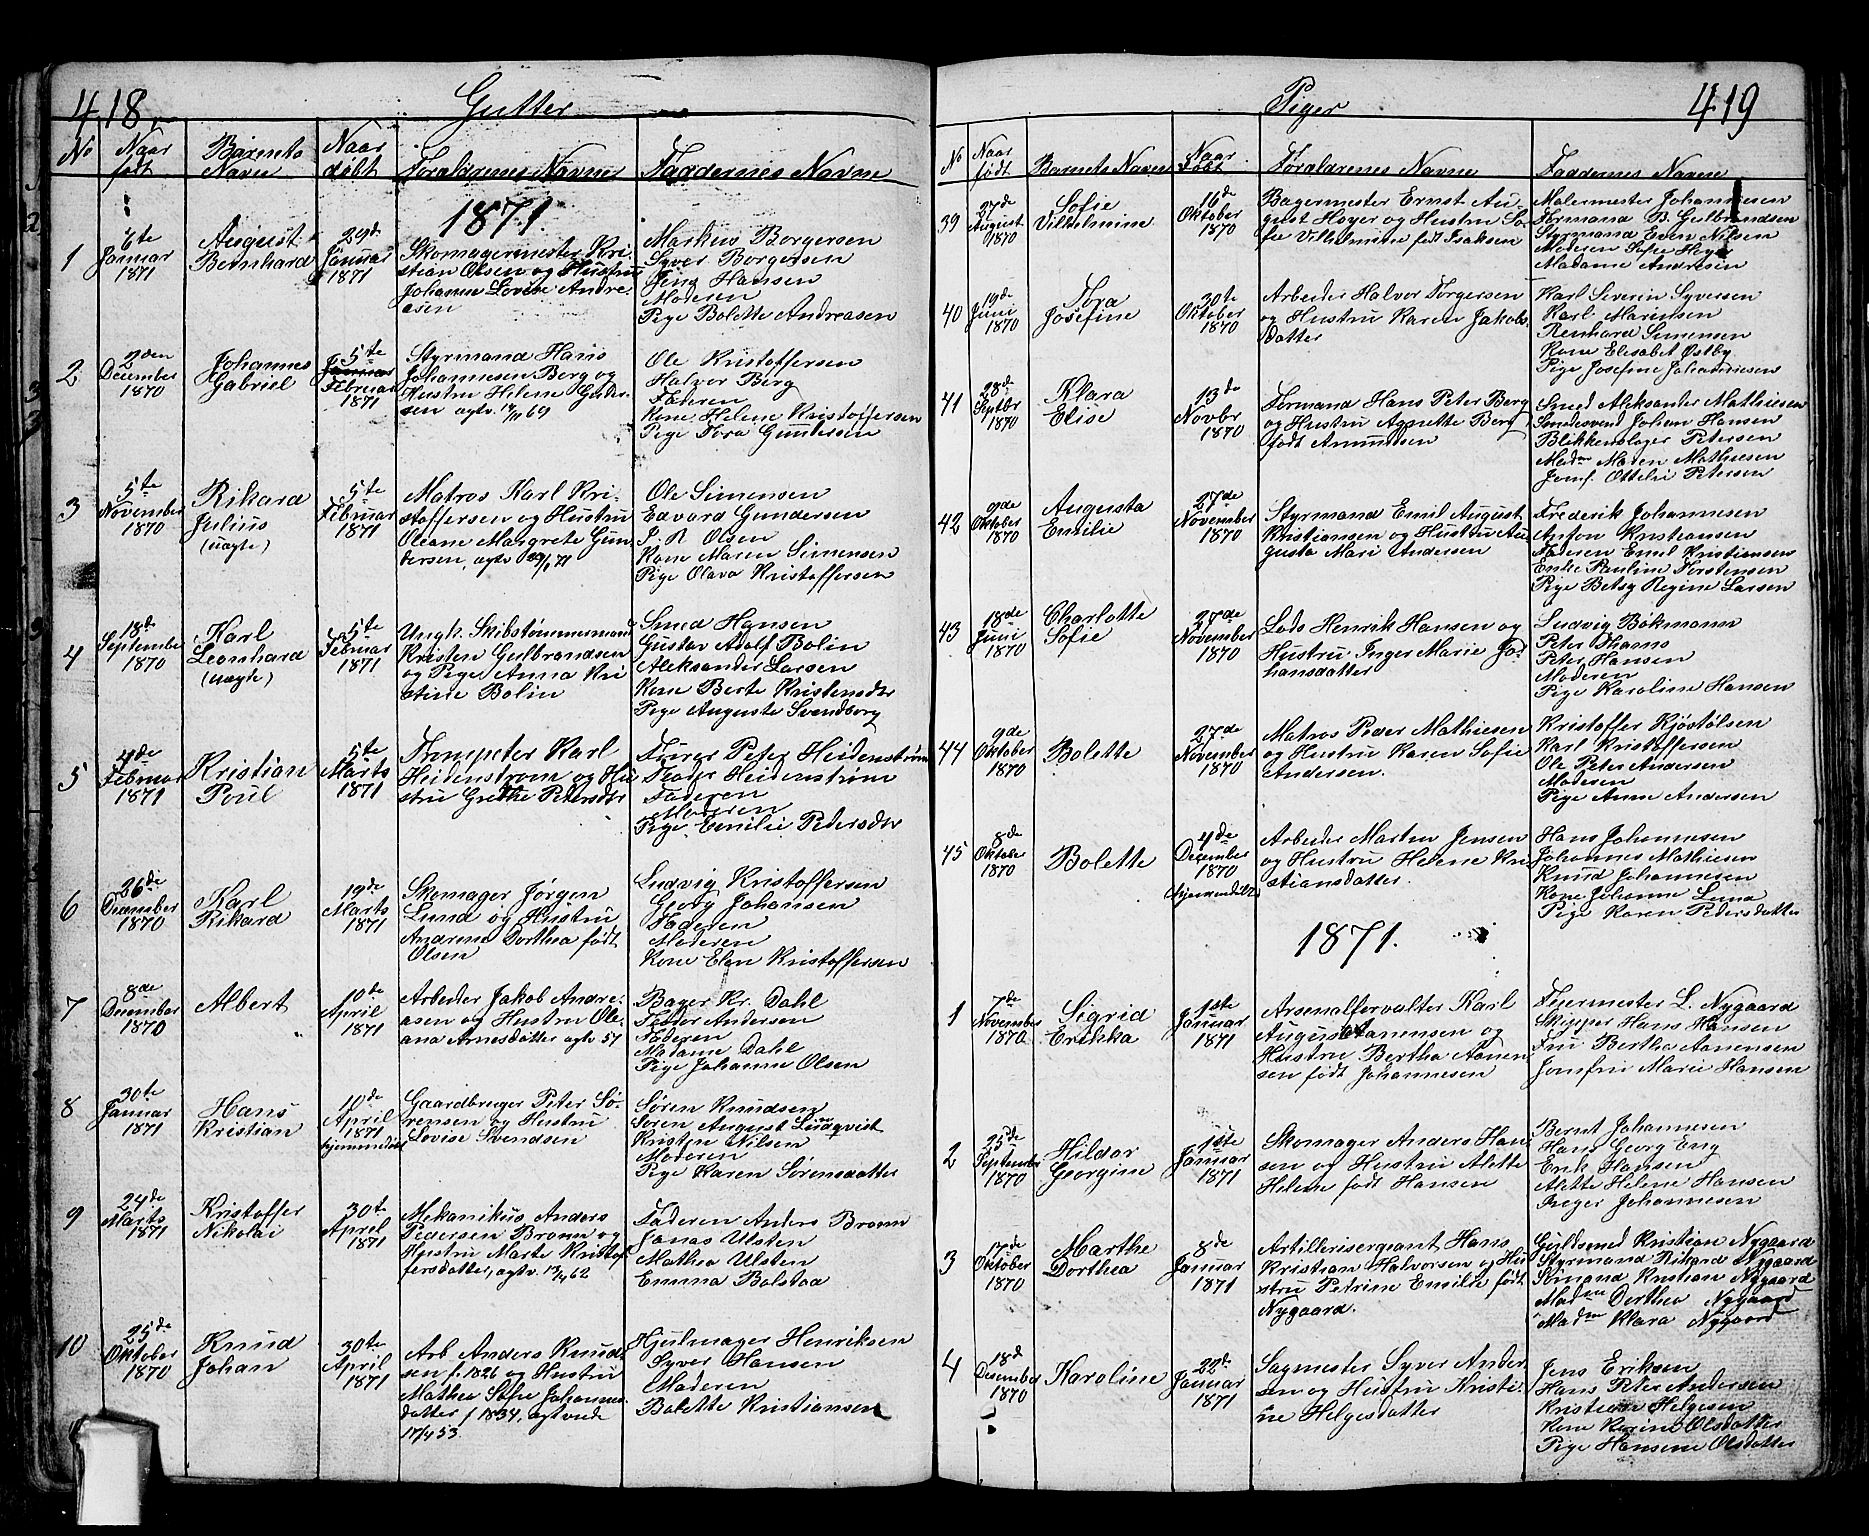 418.
Gutter
No
Naar født
Barnets Navn
Naar døbt
Forældrenes Navne
Faddernes Navne
1871.
1
6te Januar 1871
August Bernhard
29d Januar 1871
Skomagermester Kri-
stian Olsen og Hustru
Johanne Lovise Andre-
asen
Markus Borgersen
Syver Borgersen
Jens Hansen
Moderen
Pige Bolette Andreasen
2
2den December 1870
Johannes Gabriel
5te Januar Februar 1871
Styrmand Hans
Johannesen Berg og
Hustru Helene Gunder-
sen agtv. 17/11 69
Ole Kristoffersen
Halvor Berg
Faderen
Kone Helene Kristoffersen
Pige Tora Gundersen
3
5te November 1870
Rikard Julius (uægte)
5te Februar 1871
Matros Karl Kri-
stoffersen og Hustru
Oleane Margrete Gun-
dersen, agtv
Ole Simensen
Edvard Gundersen
J. R. Olsen
Kone Maren Simensen
Pige Olava Kristoffersen
4
18de September 1870
Karl Leonhard (uægte)
5te Februar 1871
Ungk. Skibstømmermand
Kristen Gulbrandsen
og Pige Anna Kri
stine Bolin
Smed Hansen
Gustav Adolf Bolin
Aleksander Larsen
Kone Berte Kristensdtr
Pige Auguste Svendborg
5
4de Februar 1871
Kristian Poul
5te Marts 1871
Trompeter Karl
Heidenstrøm og Hu
stru Grethe Petersdtr
Furer Peter Heidenstrøm
Heidenstrøm
Faderen
Moderen
Pige Emilie Pedersdtr
6
26de December 1870
Karl Rikard
19de Marts 1871
Skomager Jørgen
Lund og Hustru
Andrine Dorthea født
Olsen
Ludvig Kristoffersen
Georg Johansen
Faderen
Moderen
Kone Elen Kristoffersen
7
8de December 1870
Albert
10de April 1871
Arbeider Jakob Andre-
asen og Hustru Ole-
ana Arnesdatter agtv 57
Bager Kr. Dahl
Peder Andersen
Faderen
Madame Dahl
Pige Johanne Olsen
8
30te Januar 1871
Hans Kristian
10de April 1871 hjemmedøbt
Gaardbruger Peter Sø-
rensen og Hustru
Lovise Svendsen
Søren Knudsen
Søren August Lindqvist
Kristen Nilsen
Moderen
Pige Karen Sørensdatter
9
24de Marts 1871
Kristoffer Nikolai
30te April 1871
Mekanikus Anders
Pedersen Bronn og
Hustru Marte Kristof-
fersdatter, agtv.
Faderen Anders Bronn
Jonas Ulsten
Mathea Ulsten
Emma Bolstad
10
25de Oktober 1870
Knud Johan
30te April 1871
Arb Anders Knud-
sen f. 1826 og Hustru
Mathea Sofie Johannes-
datter f 1834, agtviede
17/4 53
Hjulmager Henriksen
Syver Hansen
Moderen
Bolette Kristiansen
419
Piger
No
Naar født
Barnets Navn
Naar døbt
Forældrenes Navne
Faddernes Navne
39
27de August 1870
Sofie Vilhelmine
16de Oktober 1870
Bagermester Ernst Au-
gust Høyer og Hustru So-
fie Vilhelmine født Isaksen
Malermester Johannesen
Formand B. Gulbrandsen
Styrmand Even Nilsen
Moderen Sofie Høyer
Madame Andresen
40
19de Juni 1870
Tora Josefine
30te Oktober 1870
Arbeider Halvor Torgersen
og Hustru Karen Jakobs-
datter
Karl Severin Syversen
Karl Mariusen
Renhard Simensen
Kone Elisabet Østby
Pige Josefine
41
28de Septbr 1870
Klara Elise
13de Novbr 1870
Formand Hans Peter Berg
og Hustru Agnette Berg
født Amundsen
Smed Aleksander Mathiesen
Smedesvend Johan Hansen
Blikkenslager Petersen
Madm Maren Mathiesen
Jomf. Ottelie Petersen
42
9de Oktober 1870
Augusta Emilie
27de November 1870
Styrmand Emil August
Kristiansen og Hustru Au
gusta Mari Andersen
Frederik Johannesen
Anton Kristiansen
Faderen Emil Kristiansen
Enke Pauline Torstensen
Pige Betsy Regine Larsen
43
18de Juni 1870
Charlotte Sofie
27de November 1870
Lods Henrik Hansen og
Hustru Inger Marie Jo-
hansdatter
Ludvig Bøkmann
Peter Bhaans
Peter Hansen
Moderen
Pige Karoline Hansen
44
9de Oktober 1870
Bolette
27de November 1870
Matros Peder Mathiesen
og Hustru Karen Sofie
Andersen.
Kristoffer Kjøstølsen
Karl Kristoffersen
Ole Peter Andersen
Moderen
Pige Anne Andersen
45
8de Oktober 1870
Bolette
4de December 1870 hjemmedøbt
Arbeider Martin Jensen
og Hustru Helene Kri
stiansdatter.
Hans Johannesen
Johannes Mathiesen
Knud Johannesen
Kone Johanne Lund
Pige Karen Pedersdatter
1871.
1
7de November 1870
Sigrid Erikka
1ste Januar 1871
Arsenalforvalter Karl
August Aanensen og
Hustru Bertha Aanen
sen født Johannesen
Feiermester L. Nygaard
Skipper Hans Hansen
Fru Bertha Aanensen
Jomfru Marie Hansen
2
25de September 1870
Hildar Georgine
1ste Januar 1871
Skomager Anders Han-
sen og Hustru Alette
Helene født Hansen
Bernt Johannesen
Hans Georg Eng
Erik Hansen
Alette Helene Hansen
Inger Johannesen
3
17de Oktober 1870
Marthe Dorthea
8de Januar 1871
Artillerisergeant Hans
Kristian Halvorsen og Hu
stru Petrine Emilie født
Nygaard.
Guldsmed Kristian Nygaard
Styrmand Rikard Nygaard
Sømand Kristian Nygaard
Madm Dorthea Nygaard
Madm Klara Nygaard
4
18d December 1870
Karoline
22de Januar 1871
Sagmester Syver Ander-
sen og Hustru Kristi-
ne Helgesdatter
Jens Eriksen
Hans Peter Andersen
Kristian Helgesen
Kone Karine Olsdatter
Pige Hansine Olsdatter